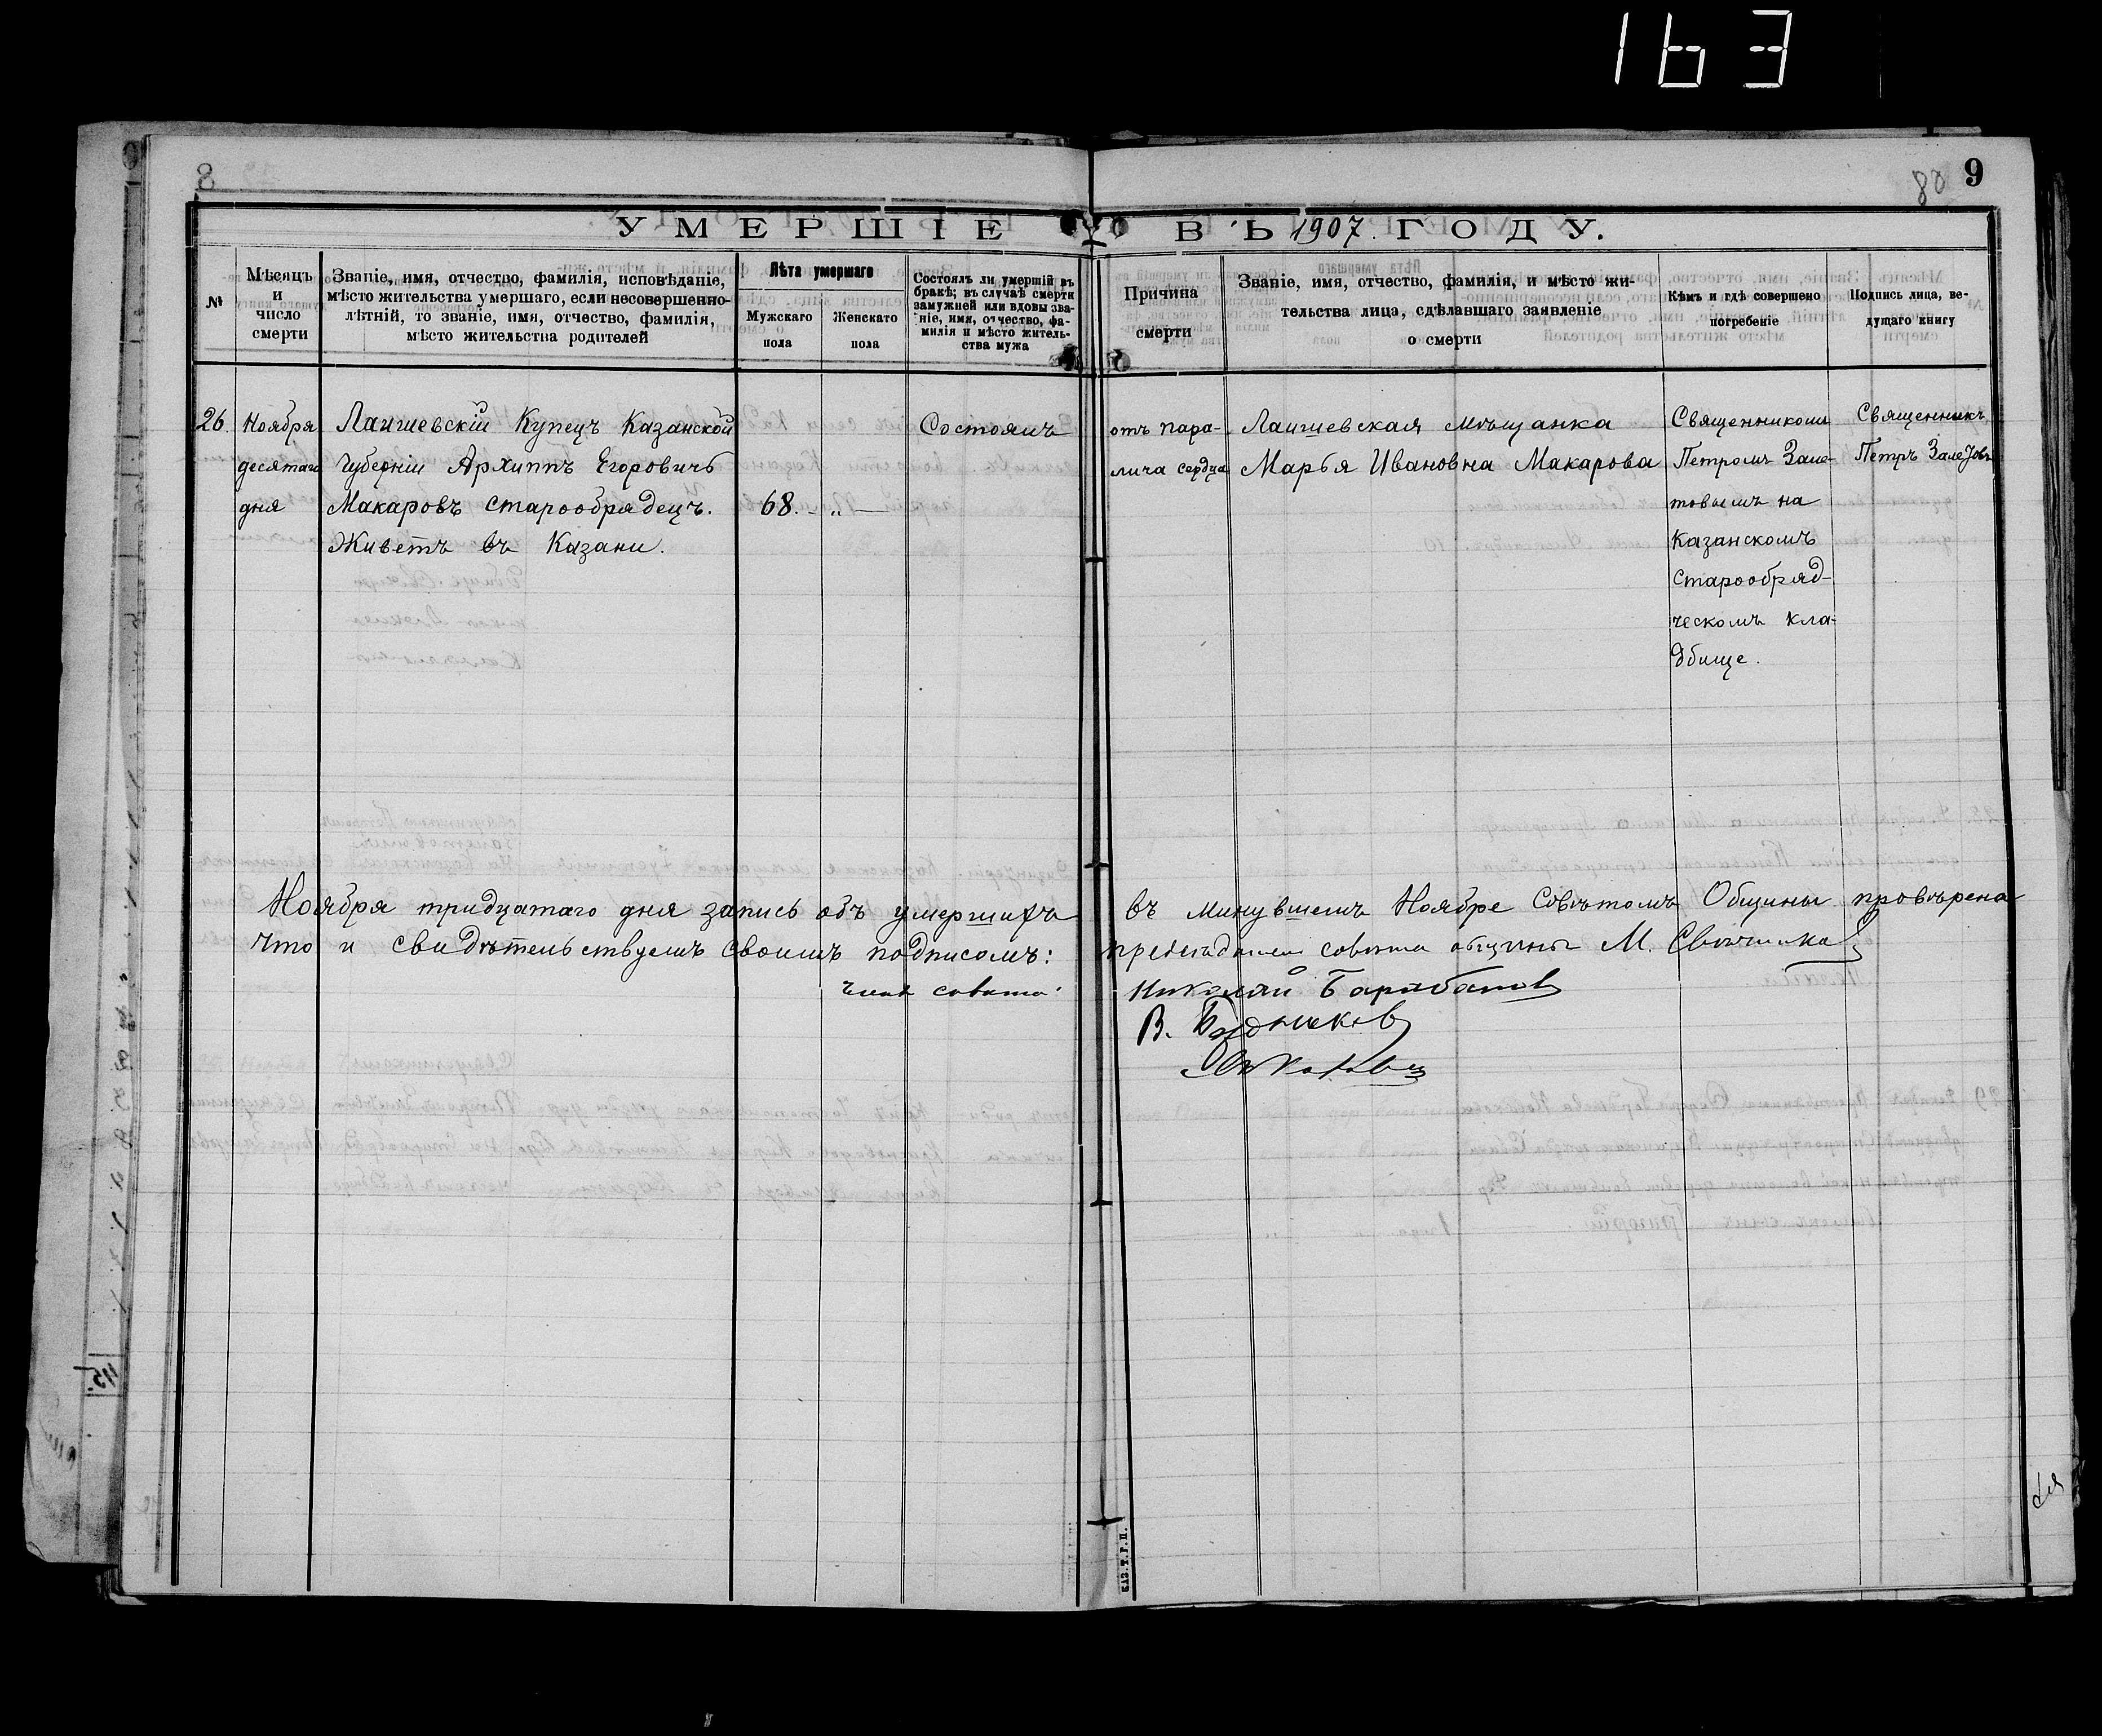 163
8
80 9
УМЕРШІЕ ВЪ 1907 ГОДУ.
№
Мѣсяцъ
и
число
смерти
Званіе, имя, отчество, фамилія, исповѣданіе,
мѣсто жительства умершаго, если несовершенно-
лѣтній, то званіе, имя, отчество, фамилія,
мѣсто жительства родителей
Лѣта умершаго
Мужскаго
пола
Женскаго
пола
Состоялъ ли умершій въ
бракѣ; въ случаѣ смерти
замужней или вдовы зва-
ніе, имя, отчество, фа-
милія и мѣсто житель-
ства мужа
Причина
смерти
Званіе, имя, отчество, фамилія, и мѣсто жи-
тельства лица, сдѣлавшаго заявленіе
о смерти
Кѣмъ и гдѣ совершено
погребеніе
Подпись лица, ве-
дущаго книгу
26.
Ноября
десятаго
дня
Лаишевскій Купецъ Казанской
Губерніи Архиппъ Егоровичъ
Макаровъ старообрядецъ.
Живетъ въ Казани.
68. - „ —
Состоялъ
отъ пара-
лича сердца
Лаишевская мѣщанка
Марья Ивановна Макарова
Священникомъ
Петромъ Зале-
товымъ на
Казанскомъ
старообряд-
ческомъ кла-
дбище.
Священникъ
Петръ Залетовъ
Ноября тридцатаго дня запись объ умершихъ въ минувшемъ Ноябре Совѣтомъ Общины провѣрена
Что и свидѣтельствуемъ своимъ подписомъ: председатель совета общины М.
члены совета: Николай Барабанов
В.
КАЗ. Т. Г. П.
115.